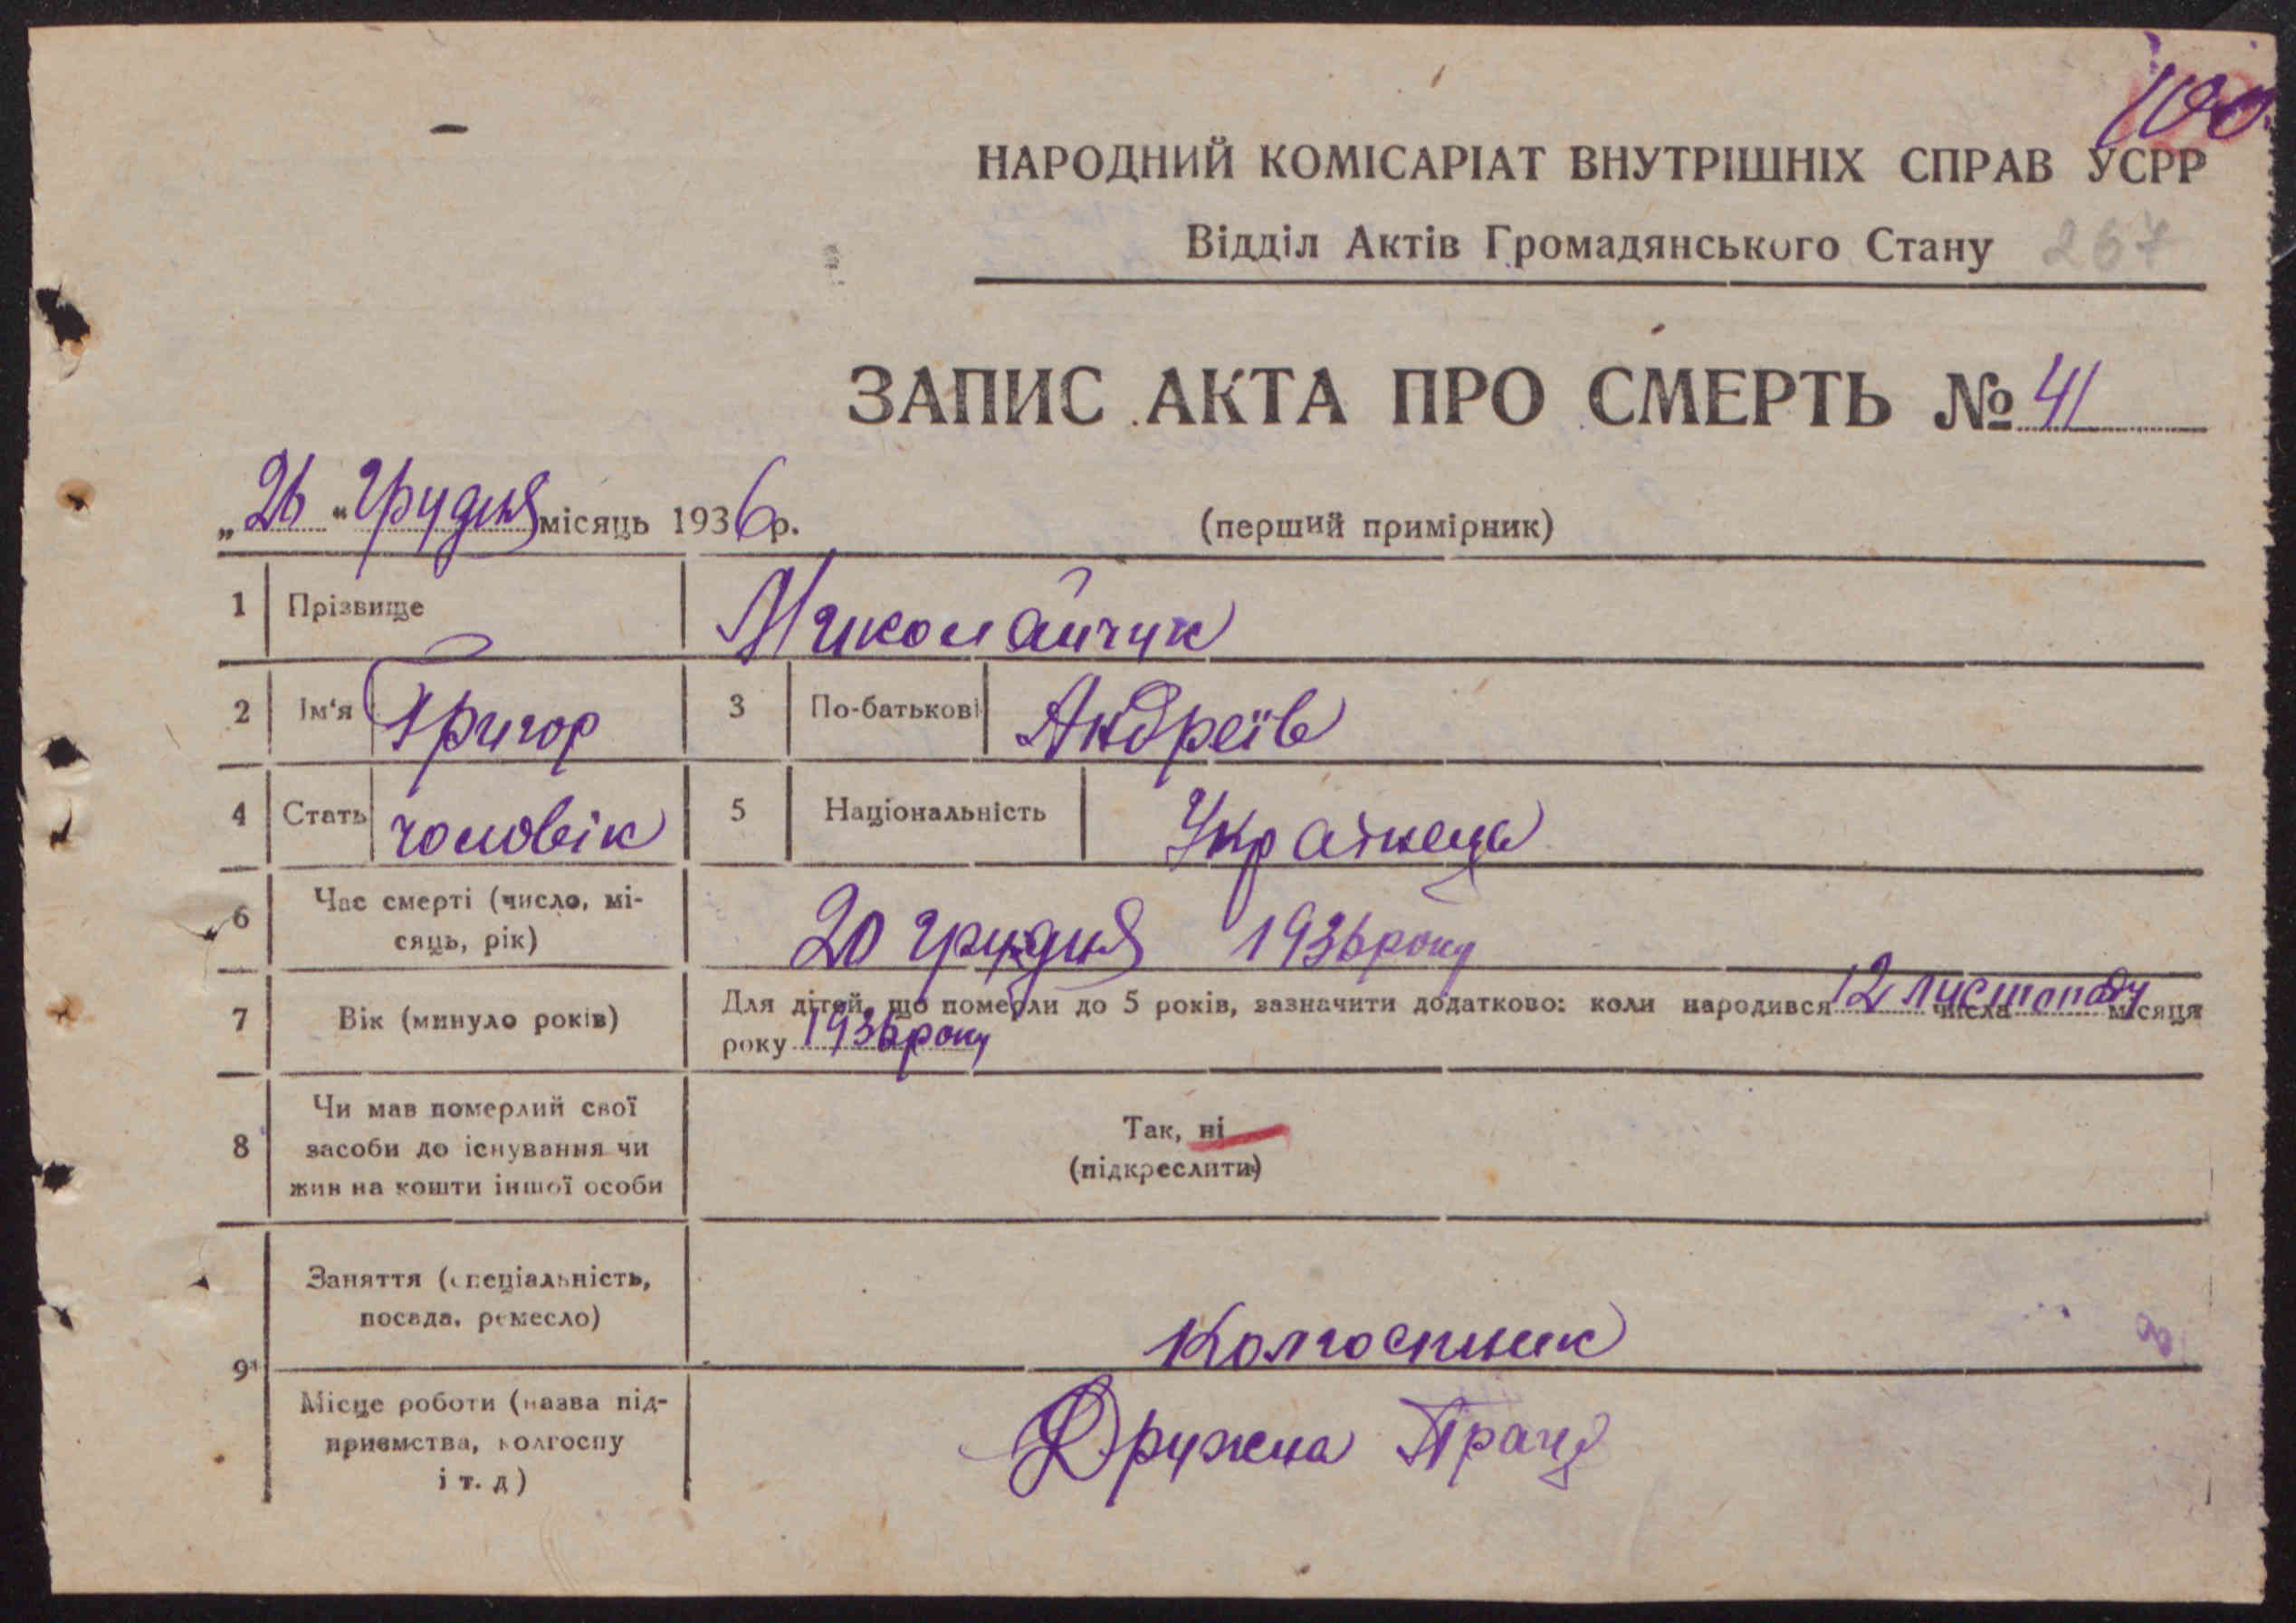 100
НАРОДНИЙ КОМІСАРІАТ ВНУТРІШНІХ СПРАВ УСРР
Відділ Актів Громадянського Стану 267
ЗАПИС АКТА ПРО СМЕРТЬ № 41
„26“ Грудня місяць 1936 р. (перший примірник)
1 Прізвище Миколайчук
2 Ім'я Григор 3 По-батькові Андреїв
4 Стать чоловік 5 Національність Українець
6 Час смерті (число, мі-
сяць, рік) 20 грудня 1936 року
7 Вік (минуло років) Для дітей, що померли до 5 років, зазначити додатково: коли народився 12 числа листопаду місяця
року 1936 року
8 Чи мав померлий свої
засоби до існування чи
жив на кошти іншої особи
Так, ні
(підкреслити)
9 Заняття (спеціальність,
посада, ремесло) Колгоспник
Місце роботи (назва під-
приємства, колгоспу
і т. д) Дружна Праця